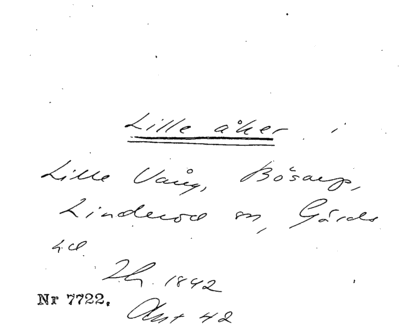 Lille åker i
Lille Vång, Bösarp,
Linderöd sn, Gärds
hd.
Zh. 1842
Nr 7722. Akt 42